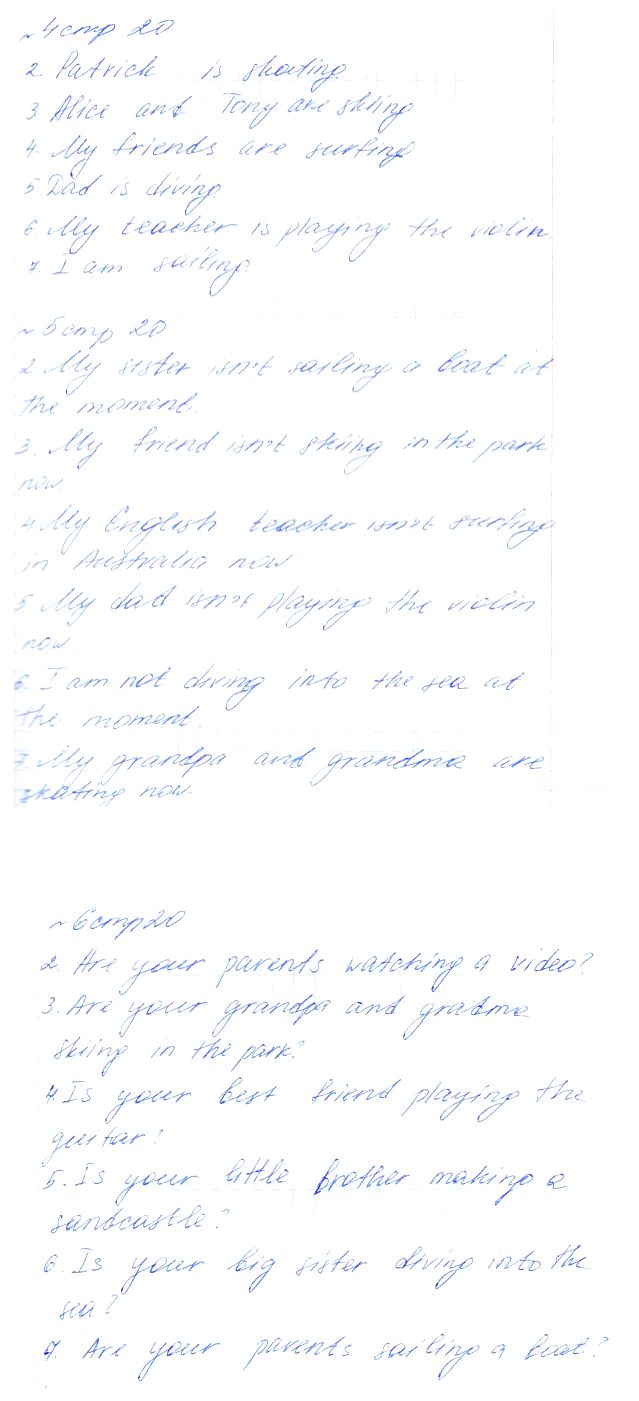 ~4 стр 20
2. Patrick is skating.
3. Alice and Tony are skiing
4. My friends are surfing
5 Dad is diving.
6. My teacher is playing the violin.
7. I am sailing.
~5 стр 20
2 My sister isn't sailing a boat at
the moment.
3. My friend isn't skiing in the park
now.
4 My English teacher isn't surfing
in Australia now
5 My dad isn't playing the violin
now
6. I am not diving into the sea at
the moment.
7. My grandpa and grandma are
skating now.
~6 стр 20
2. Are your parents watching a video?
3. Are your grandpa and gradma
skiing in the park?
4. Is your best friend playing the
guitar?
5. Is your little brother making a
sandcastle?
6. Is your big sister diving into the
sea?
7. Are your parents sailing a boat?